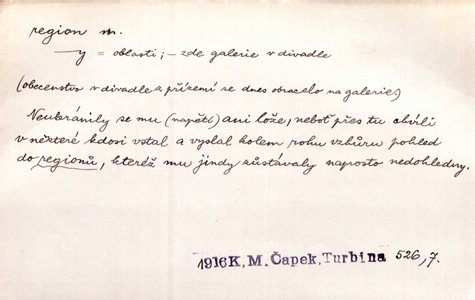 region m.
—y = oblasti; – zde galerie v divadle
(obecenstvo v divadle z přízemí se dnes obracelo na galerie.)
Neubránily se mu (napětí) ani lože, neboť přes tu chvíli
v některé kdosi vstal a vyslal kolem rohu vzhůru pohled
do regionů, kteréž mu jindy zůstávaly naprosto nedohledny.
1916 K, M. Čapek, Turbina 526, 7.